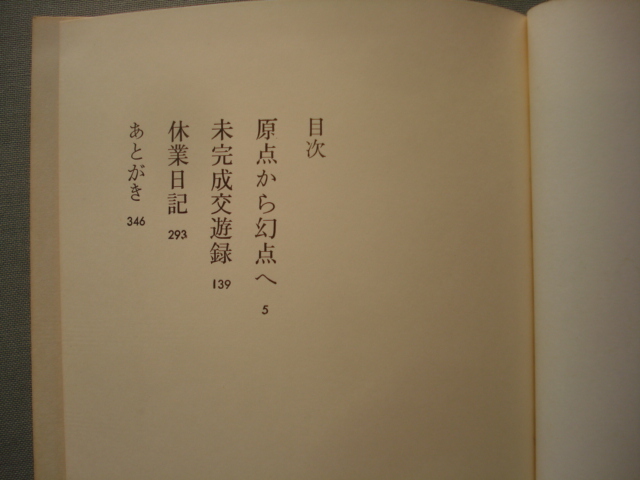 目次
原点から幻点へ 5
未完成交遊録 139
休業日記 293
あとがき 346